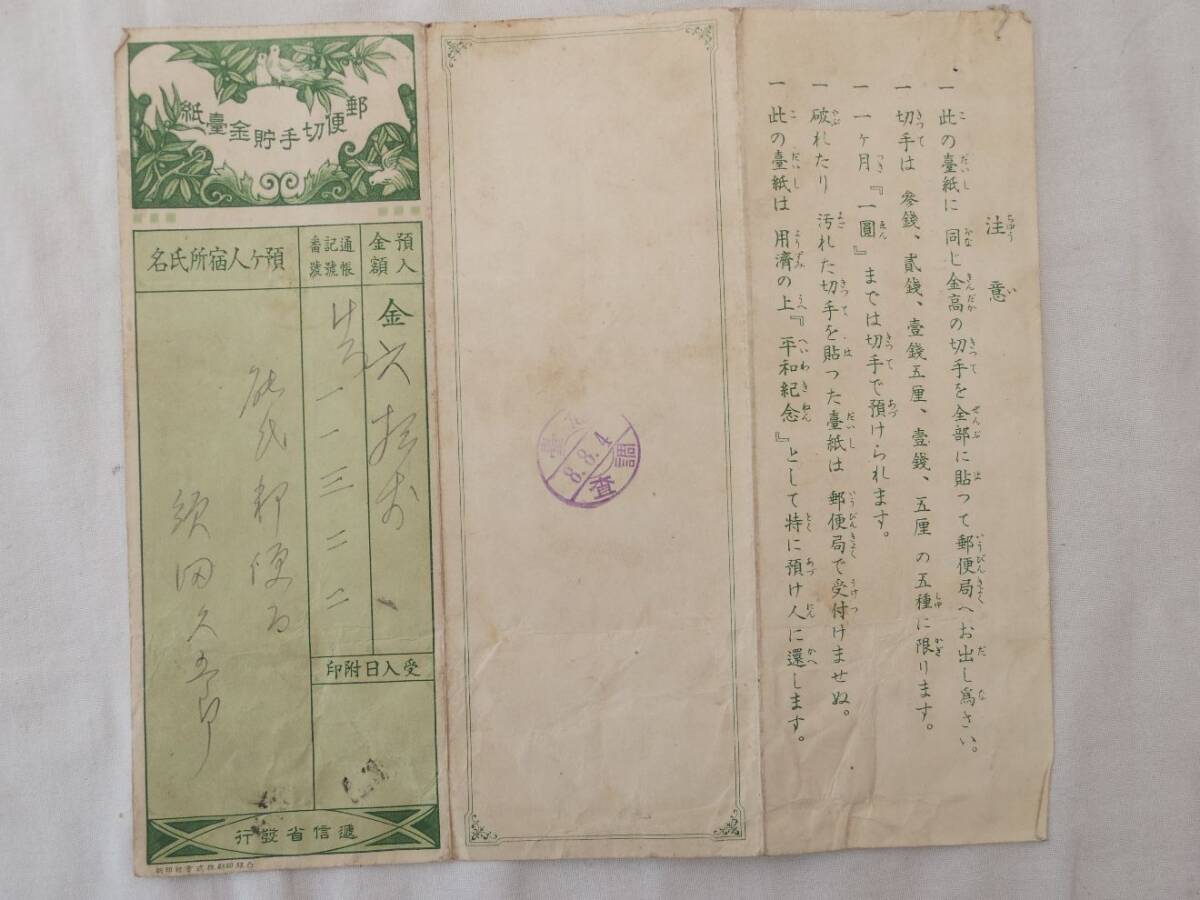 注意
一 此の臺紙に 同じ金高の切手を全部に貼つて郵便局へお出し爲さい。
一 切手は 參錢、貳錢、壹錢五厘、壹錢、五厘 の五種に限ります。
一 一ヶ月『一圓』までは切手で預けられます。
一 破れたり 汚れた切手を貼つた臺紙は 郵便局で受付けませぬ。
一 此の臺紙は 用濟の上『平和紀念』として特に預け人に還します。
調査
8.8.4
紙臺金貯手切便郵
預入金額
金六拾
通帳記號番號
一一三二二
名氏所宿人ヶ預
郵便局
須田久五郎
印附日入受
行發省信遞